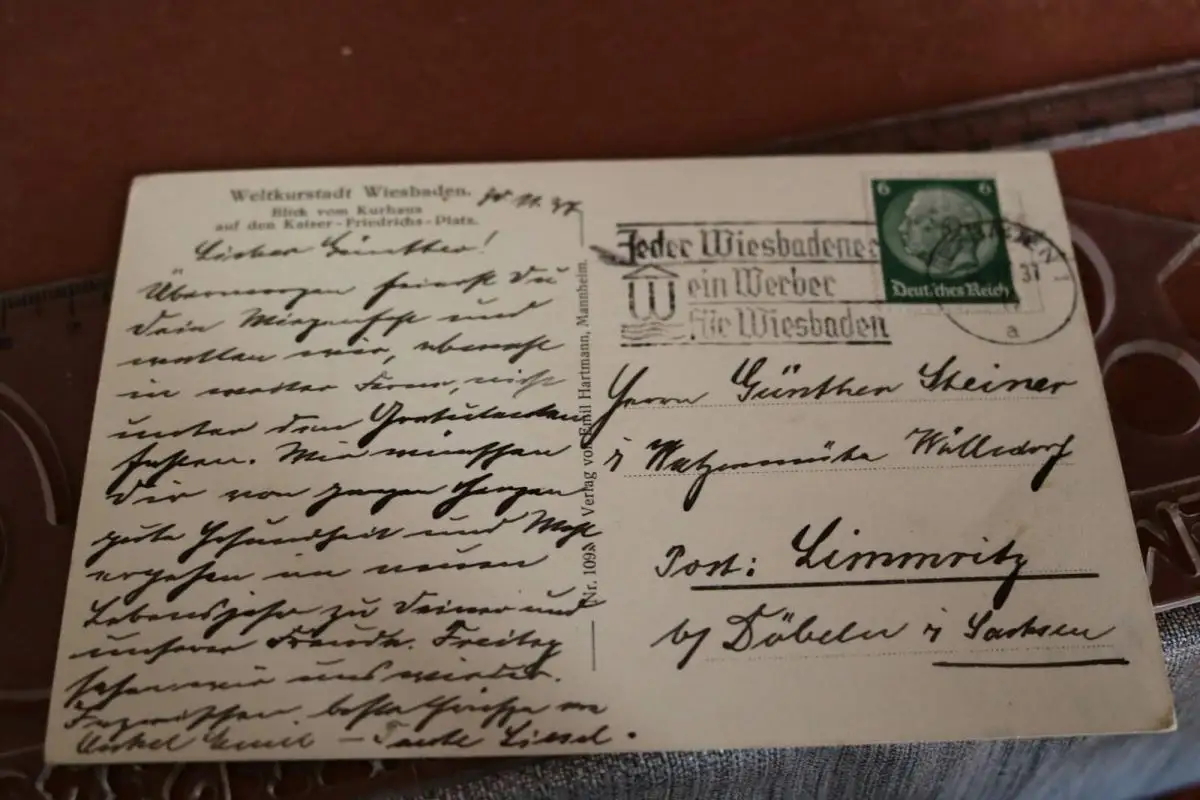 Weltkurstadt Wiesbaden.
Blick vom Kurhaus
auf den Kaiser-Friedrichs-Platz.
11. 37
Lieber Günther!
Übermorgen feierst Du
Dein Wiegenfest und
wollen wir, obwohl
in weiter Ferne, nicht
unter den Gratulanten
fehlen. Wir wünschen
Dir von ganzen Herzen
gute Gesundheit und Wohl
ergehen im neuen
Lebensjahr zu Deiner und
unserer Freude. Freitag
sehen wir uns wieder.
Inzwischen beste Grüße von
Onkel Emil – Tante Liesel.
Nr. 109 Verlag von Emil Hartmann, Mannheim.
Jeder Wiesbadener
ein Werber
für Wiesbaden
6 6
Deutsches Reich
37
a
Herrn Günther Steiner
Post: Limmritz
b/ Döbeln i/ Sachsen